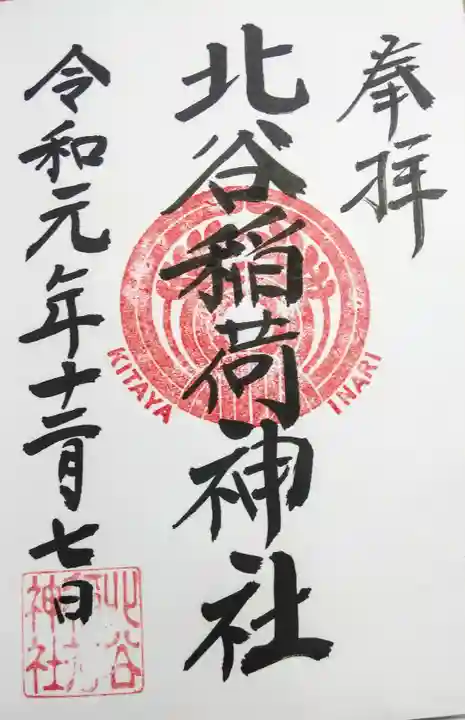 奉拝
北谷稲荷神社
KITAYA INARI
令和元年十二月七日
北谷
稲荷
神社